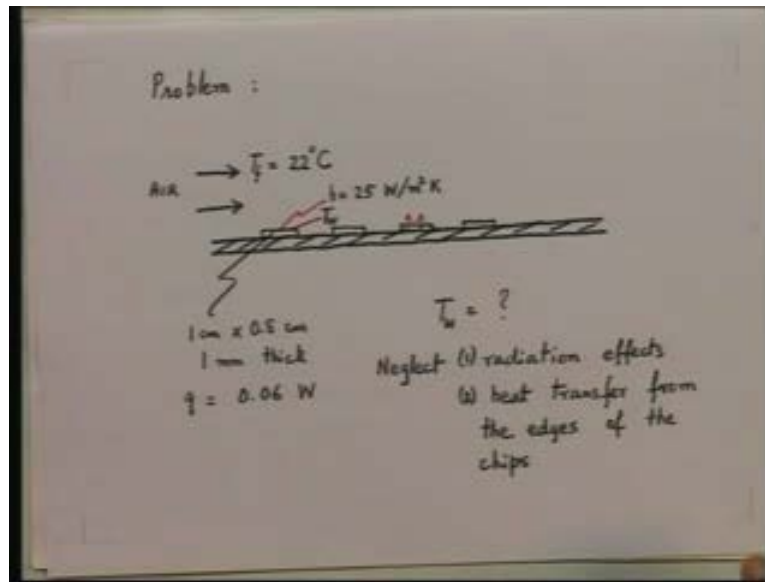 Problem :
AIR → T_f = 22°C
→ h = 25 W/m²K
T_w
1 cm x 0.5 cm
1 mm thick
q = 0.06 W
T_w = ?
Neglect (1) radiation effects
(2) heat transfer from
the edges of the
chips